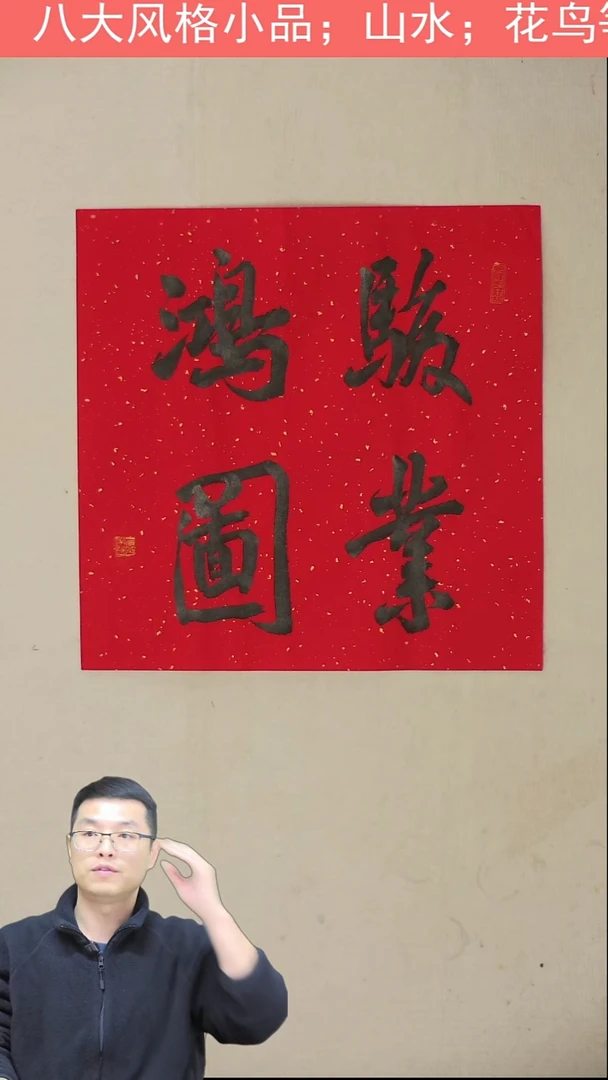 八大风格小品；山水；花鸟
駿業
鴻圖